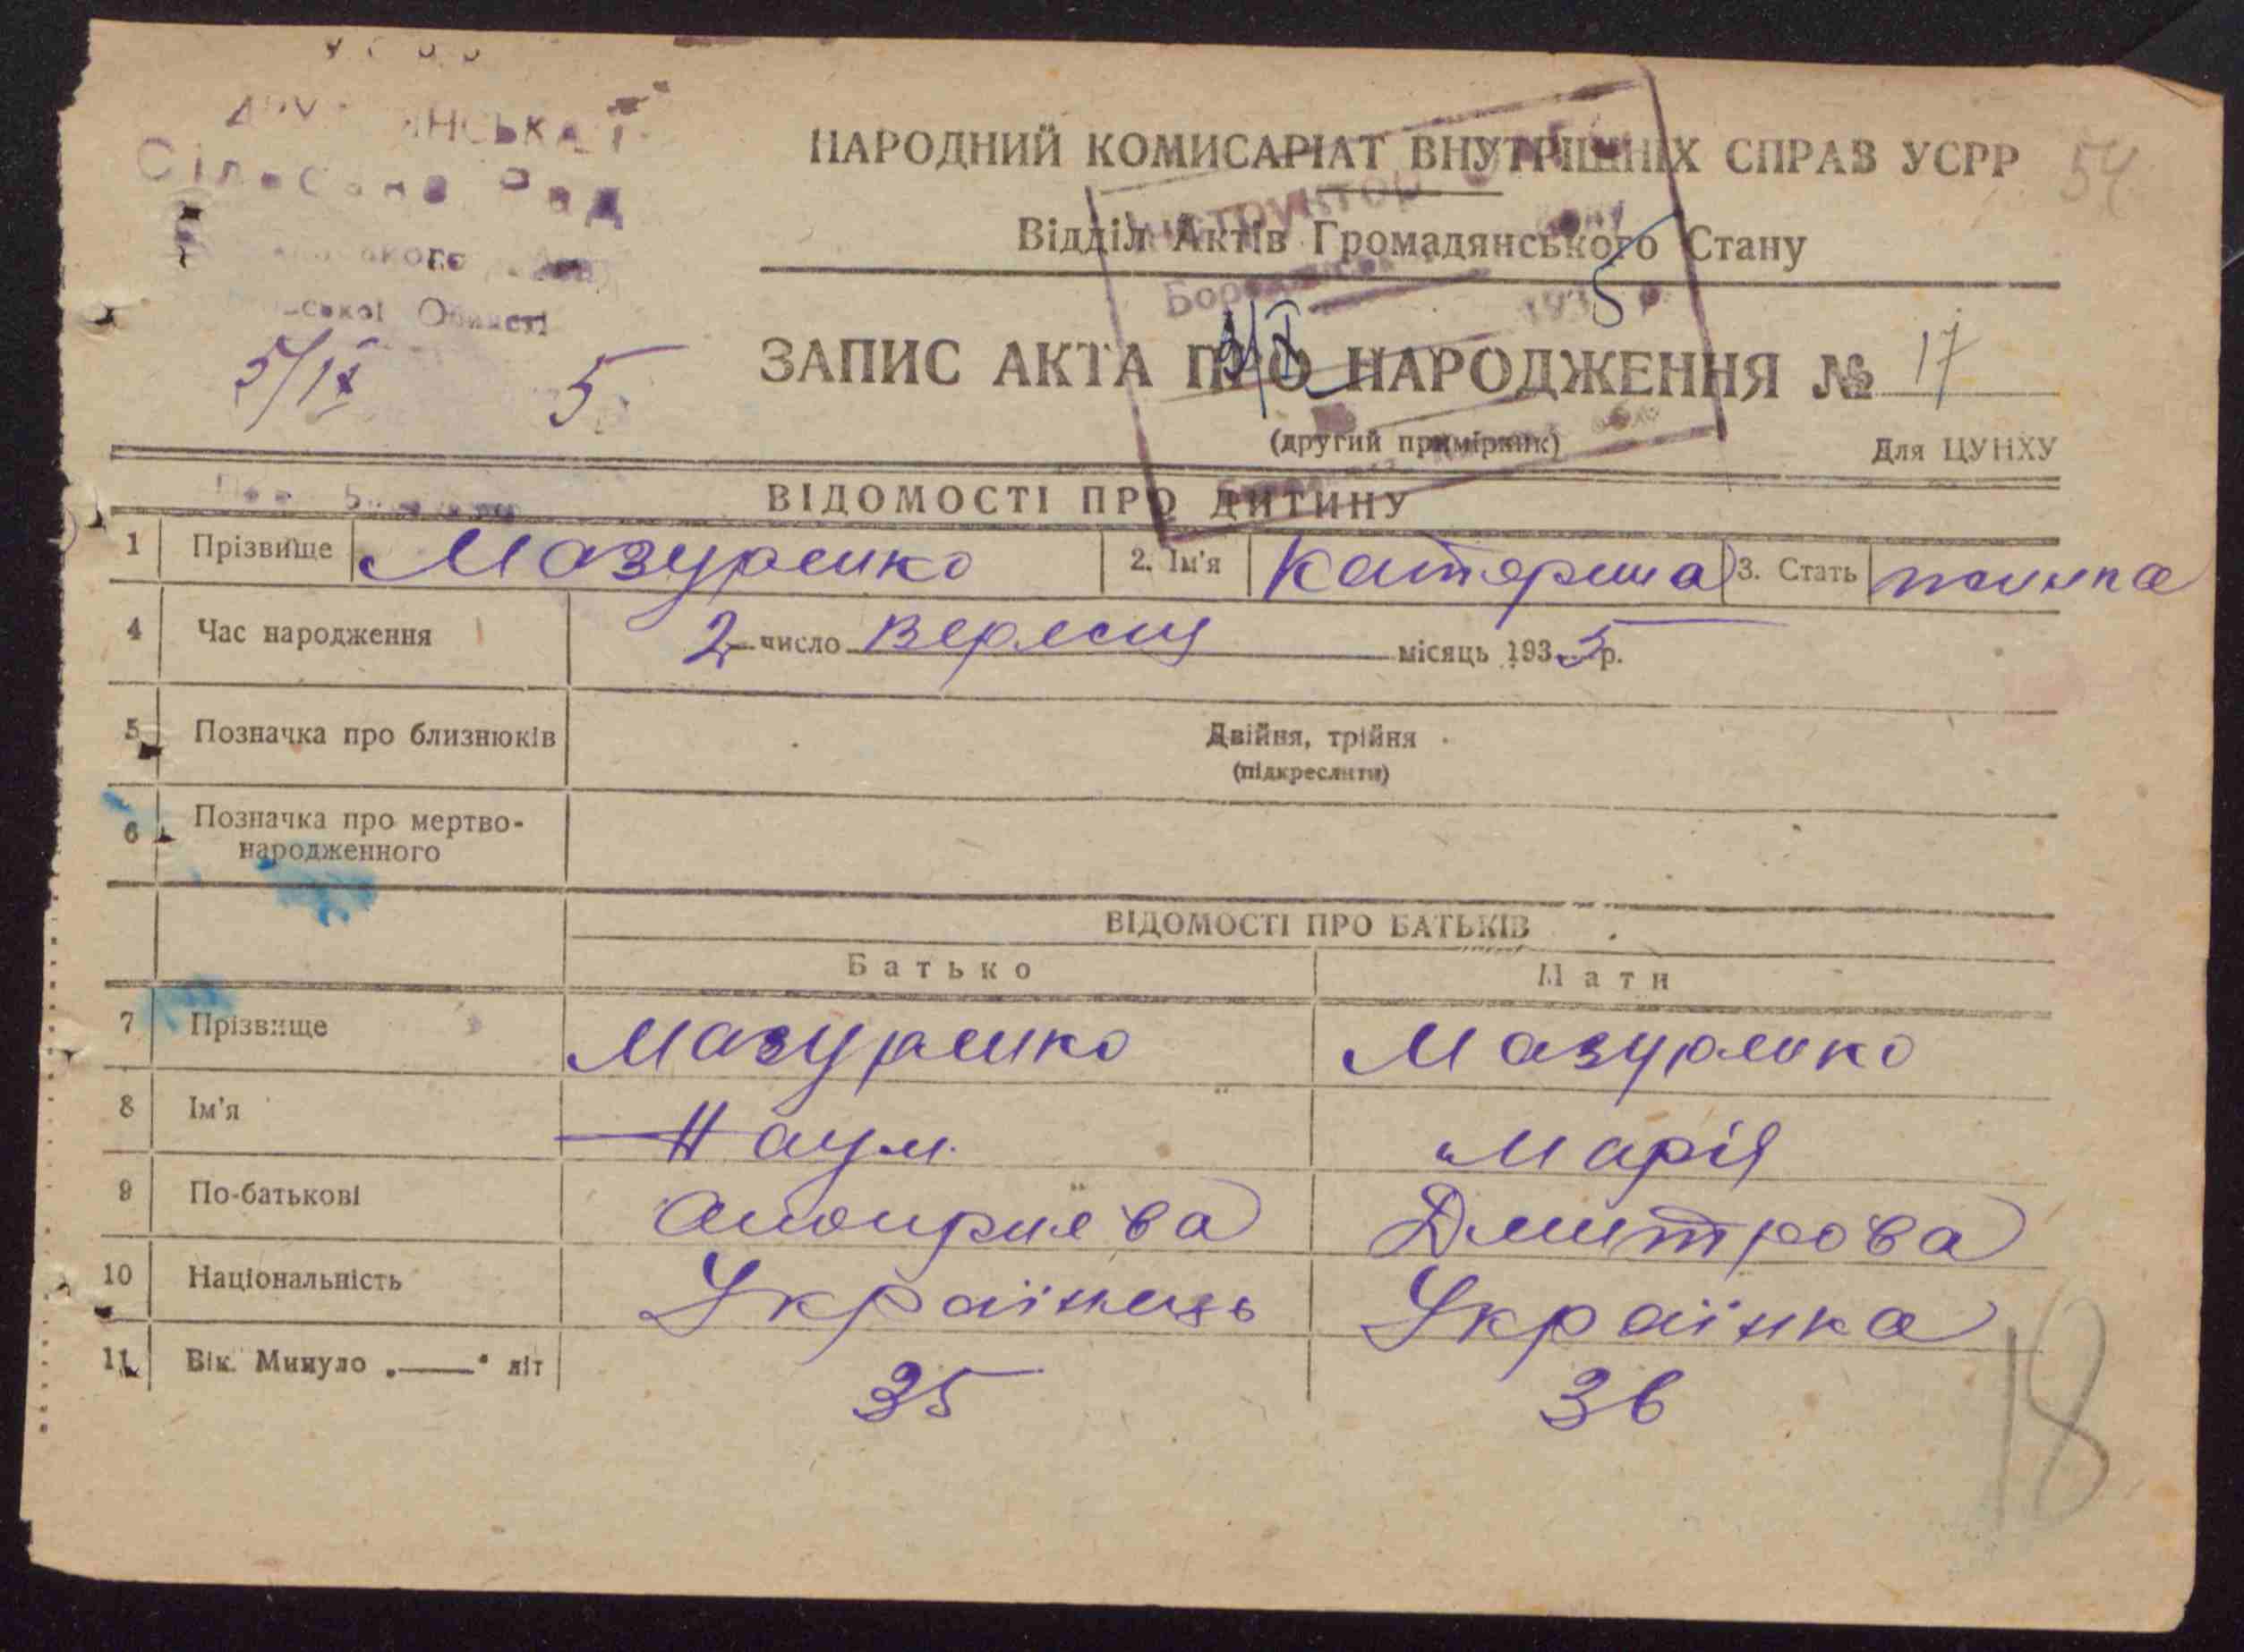 54
НАРОДНИЙ КОМИСАРІАТ ВНУТРІШНІХ СПРАВ УСРР
Відділ Актів Громадянського Стану
Інструктор
5
5/IX 5
ЗАПИС АКТА ПРО НАРОДЖЕННЯ № 17
(другий примірник)
Для ЦУНХУ
ВІДОМОСТІ ПРО ДИТИНУ
1 Прізвище Мазуренко 2. Ім'я Катерина 3. Стать
4 Час народження 2 число Вересня місяць 1935 р.
5 Позначка про близнюків Двійня, трійня
(підкреслити)
6 Позначка про мертво-
народженного
ВІДОМОСТІ ПРО БАТЬКІВ
Батько Мати
7 Прізвище Мазуренко Мазуренко
8 Ім'я Наум Марія
9 По-батькові Дмитрова
10 Національність Українець Українка
11 Вік. Минуло „——“ літ 35 36
18